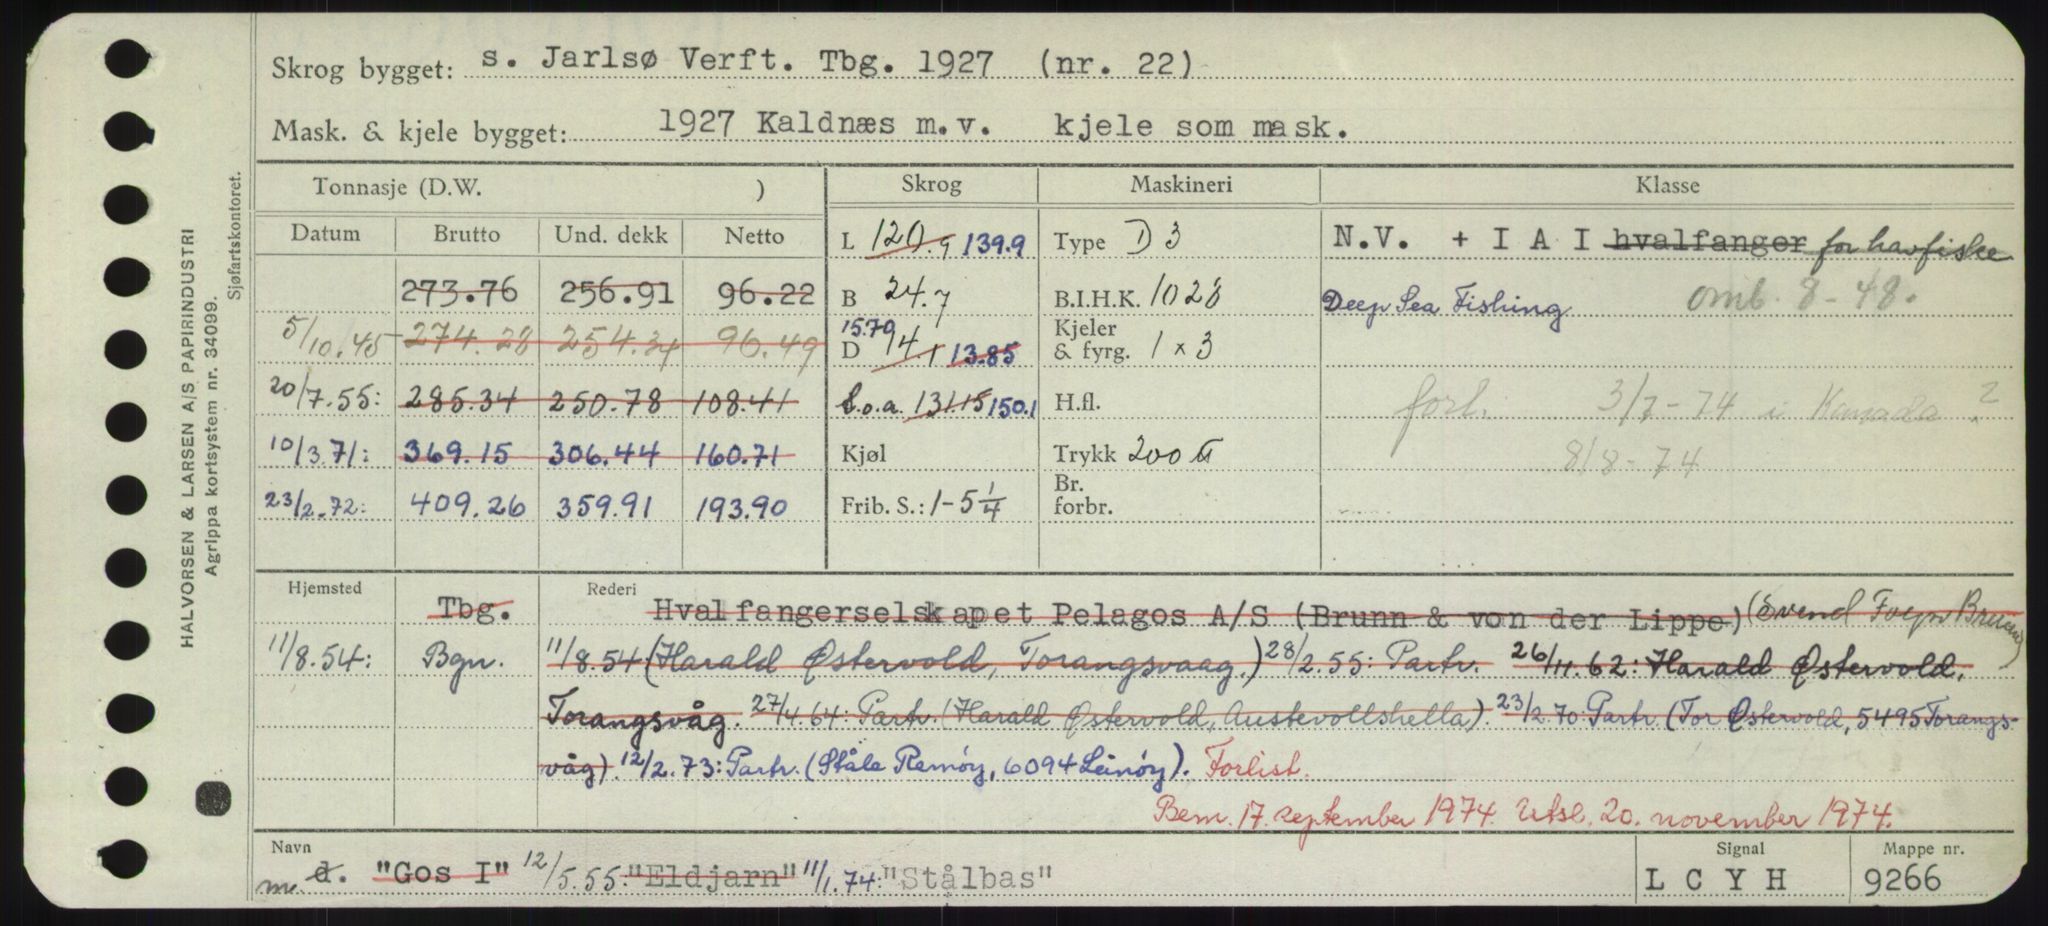 Skrog bygget: s. Jarlsø Verft. Tbg. 1927 (nr. 22)
Mask. & kjele bygget: 1927 Kaldnæs m.v. kjele som mask.
HALVORSEN & LARSEN A/S PAPIRINDUSTRI
Agrippa kortsystem nr. 34099.
Sjøfartskontoret.
Tonnasje (D.W. ) Skrog Maskineri Klasse
Datum Brutto Und. dekk Netto L 120.9 139.9 Type D 3 N.V. + I A I hvalfanger for havfiske
273.76 256.91 96.22 B 24.7 B.I.H.K. 1028 Deep Sea Fishing omb. 8-48.
5/10.45 274.28 254.34 96.49 D 15.70 14.1 13.85 Kjeler & fyrg. 1 x 3
20/7.55: 285.34 250.78 108.41 L.o.a. 131.15 150.1 H.fl. forl. 3/7-74 i Kanada ?
10/3.71: 369.15 306.44 160.71 Kjøl Trykk 200 8/8-74
23/2.72: 409.26 359.91 193.90 Frib. S.: 1-5 1/4 Br. forbr.
Hjemsted Rederi
Tbg. Hvalfangerselskapet Pelagos A/S (Brunn & von der Lippe) (Svend Foyn Bruun)
11/8.54: Bgn. 11/8.54 (Harald Østervold, Torangsvaag.) 28/2.55: Partr. 26/11.62: Harald Østervold,
Torangsvåg. 27/4.64: Partr. (Harald Østervold, Austevollshella). 23/2.70: Partr. (Tor Østervold, 5495 Torangs-
våg). 12/2.73: Partr. (Ståle Remøy, 6094 Leinøy). Forlist.
Bem. 17. september 1974. Utsl. 20. november 1974.
Navn Signal Mappe nr.
m. d. "Gos I" 12/5.55: "Eldjarn" 11/1.74: "Stålbas" L C Y H 9266